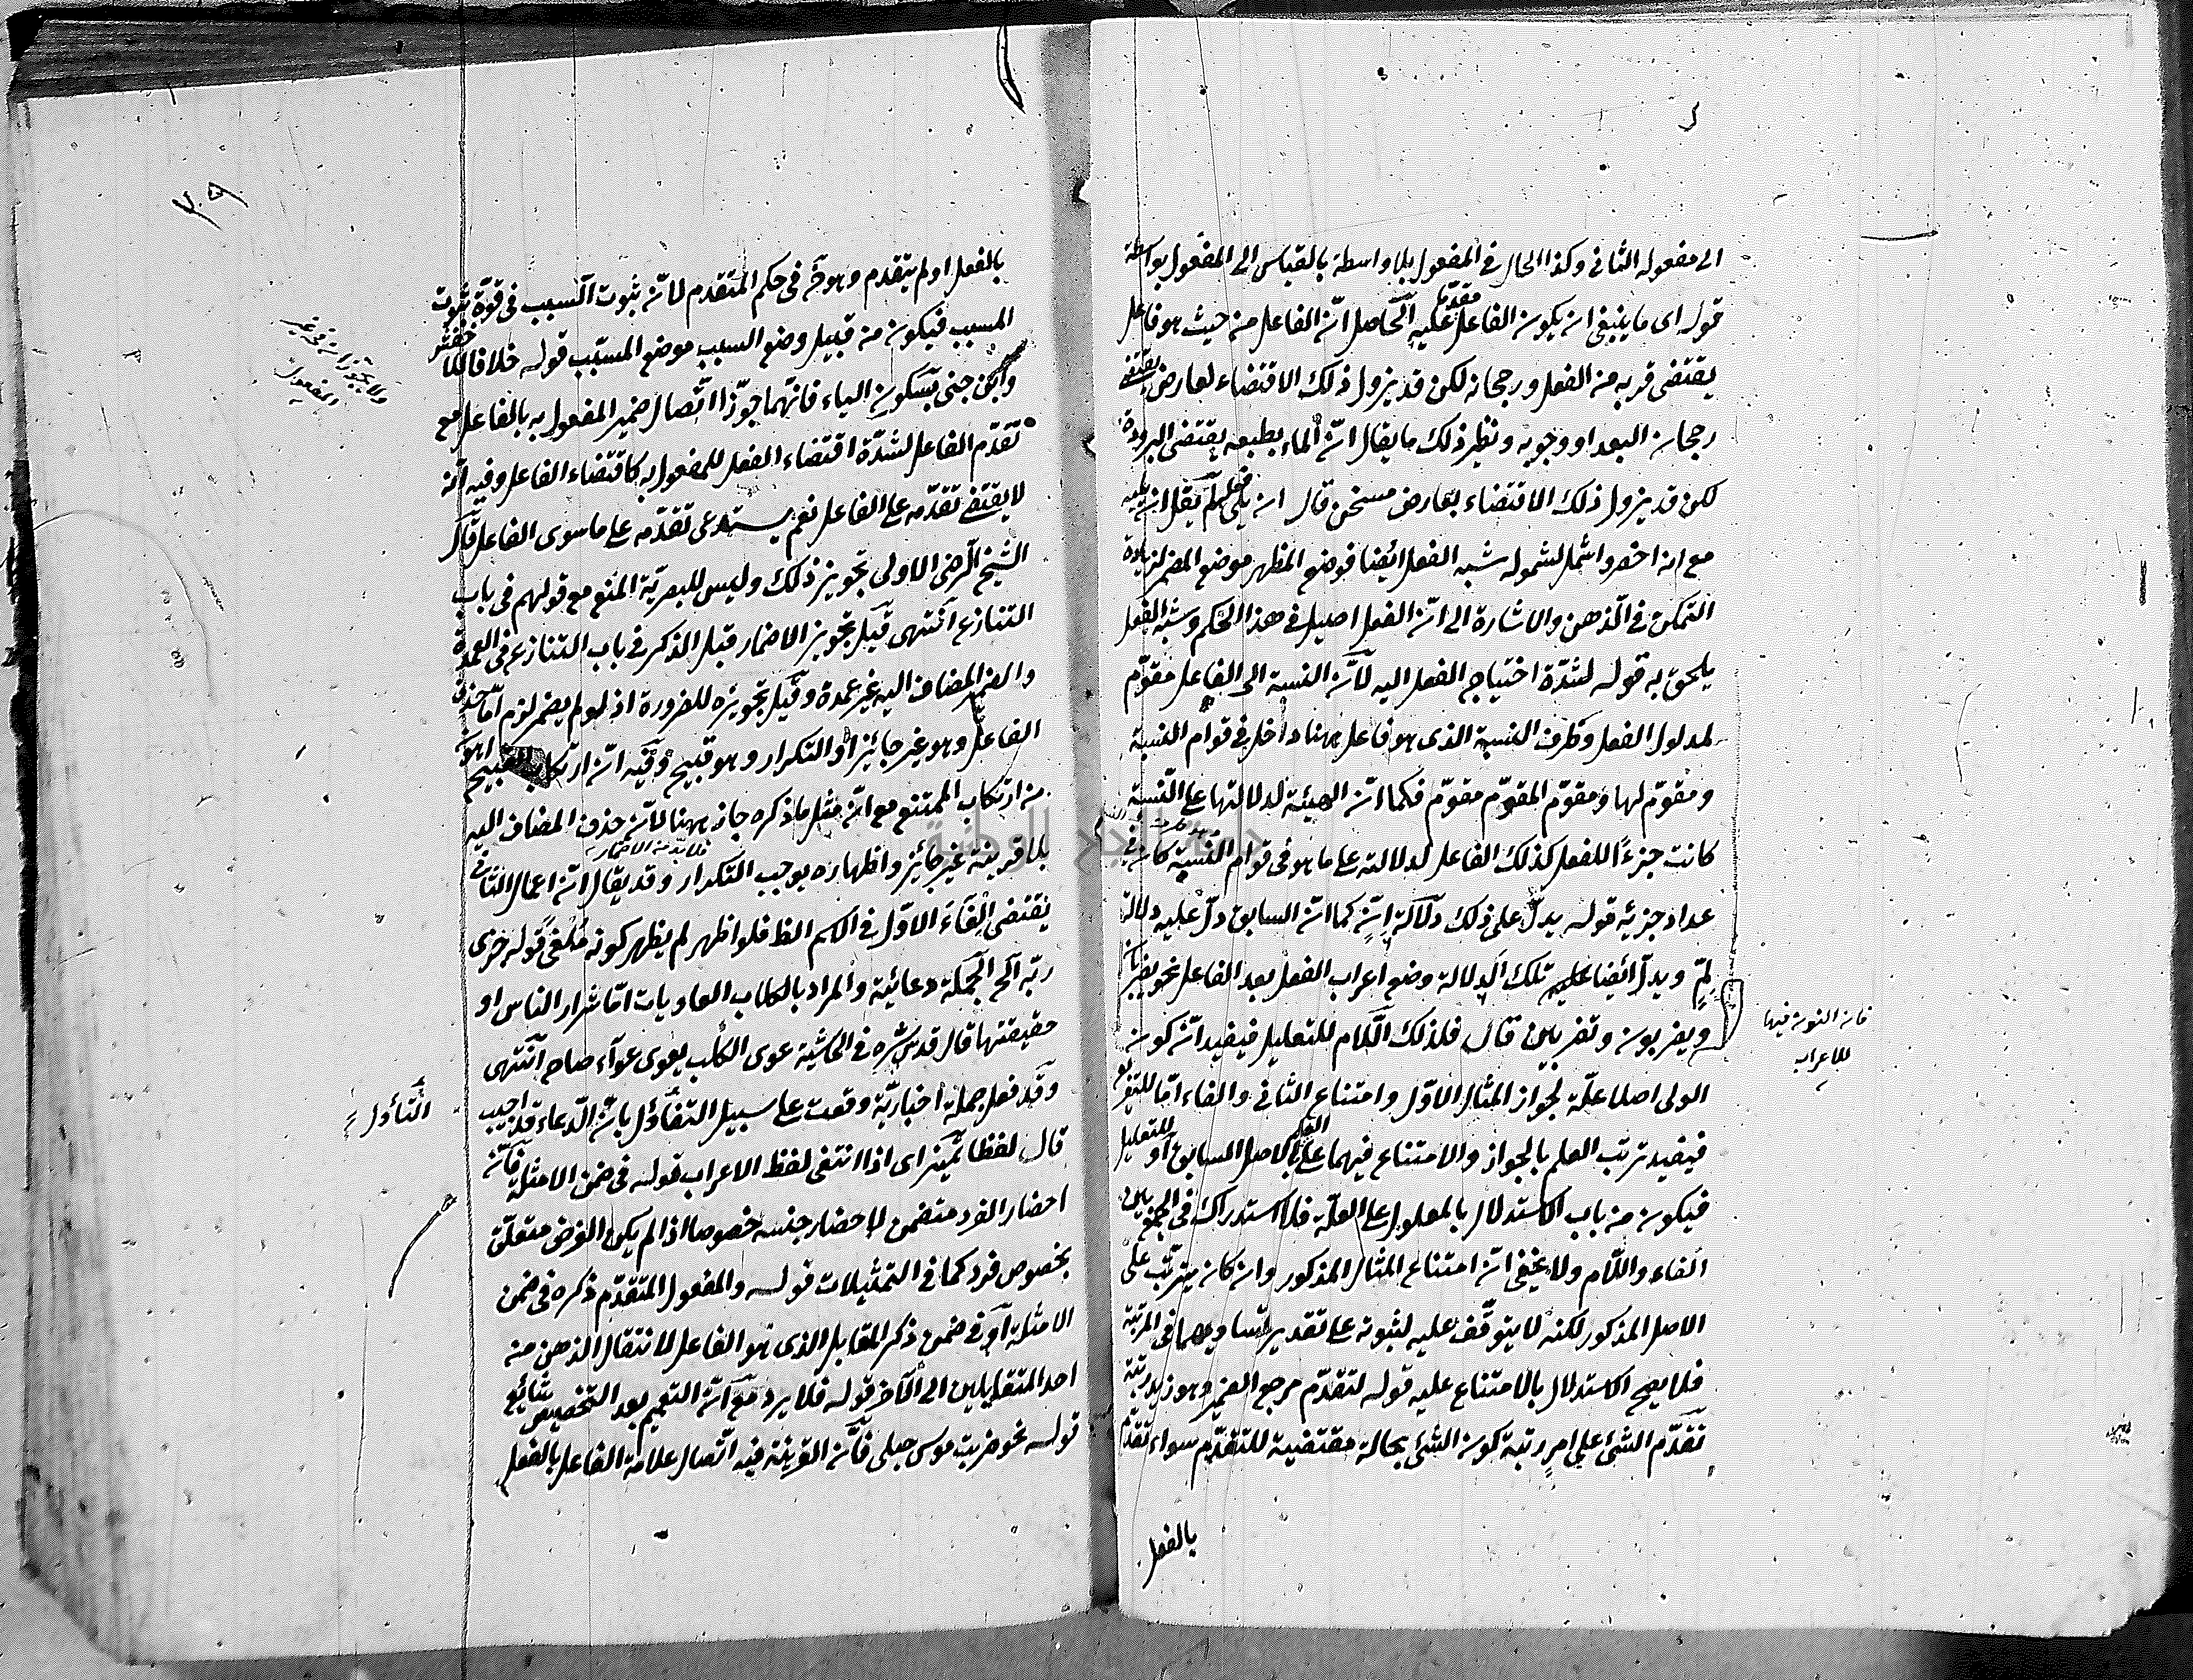 الى مفعوله الثانى وكذا الحال فى المفعول بلا واسطة بالقياس الى المفعول بواسطة
قوله اى ما ينبغى ان يكون الفاعل مقدما عليه الحاصل انّ الفاعل من حيث هو فاعل
يقتضى قربه من الفعل ورجحانه لكن قد يزول ذلك الاقتضاء لعارض يقتضى
رجحان البعد او وجوبه ونظير ذلك ما يقال انّ الماء بطبعه يقتضى البرودة
لكن قد يزول ذلك الاقتضاء بعارض مسخن قال ان يلى فعله لم يقل ان يليه
مع انه اخصر واشمل لشموله شبه الفعل ايضا فوضع المظهر موضع المضمر لزيادة
التمكن فى الذهن والاشارة الى انّ الفعل اصيل فى هذا الحكم وشبه الفعل
يلحق به قوله لشدّة احتياج الفعل اليه لانّ النسبة الى الفاعل مقوّم
لمدلول الفعل وطرف النسبة الذى هو فاعل ههنا داخل فى قوام النسبة
ومقوّم لها ومقوّم المقوّم مقوّم فكما انّ الهيئة لدلالتها على النّسبة
كانت جزءًا للفعل كذلك الفاعل لدلالته على ما هو فى قوام النسبة كان فى
عداد جزئه قوله يدلّ على ذلك دلالة إنٍّ كما انّ السابق دلّ عليه دلالة
لِمٍّ ويدلّ ايضا عليه تلك الدلالة وضع اعراب الفعل بعد الفاعل نحو يضربان
ويضربون وتضربين قال فلذلك اللّام للتعليل فيفيد انّ كون
فان النون فيها
للاعراب
الولى اصلا علّة لجواز المثال الاوّل وامتناع الثانى والفاء امّا للتفريع
فيفيد ترتب العلم بالجواز والامتناع فيهما على العلم بالاصل السابق او للتعليل
فيكون من باب الاستدلال بالمعلول على العلّة فلا استدراك فى الجمع بين
الفاء واللّام ولا يخفى انّ امتناع المثال المذكور وان كان يترتّب على
الاصل المذكور لكنه لا يتوقّف عليه لثبوته على تقدير تساويهما فى المرتبة
فلا يصح الاستدلال بالامتناع عليه قوله لتقدّم مرجع الضمير وهو زيد رتبة
تقدّم الشئ على امرٍ رتبة كون الشئ بحالة مقتضية للتقدّم سواء تقدّم
بالفعل
٣٠٩
بالفعل او لم يتقدم وهو فى حكم المتقدم لانّ ثبوت السبب فى قوّة ثبوت
المسبب فيكون من قبيل وضع السبب موضع المسبّب قوله خلافا للاخفش
وابن جنى بسكون الياء فانّهما جوّزا اتّصال ضمير المفعول به بالفاعل مع
تقدّم الفاعل لشدّة اقتضاء الفعل للمفعول به كاقتضاء الفاعل وفيه انّه
لا يقتضى تقدّمه على الفاعل نعم يستدعى تقدّمه على ما سوى الفاعل قال
الشيخ الرضى الاولى تجويز ذلك وليس للبصريّة المنع مع قولهم فى باب
التنازع انتهى قيل تجويز الاضمار قبل الذكر فى باب التنازع فى العمدة
والضمير المضاف اليه غير عمدة وقيل تجويزه للضرورة اذ لو لم يضمر لزم امّا حذف
الفاعل وهو غير جائز او التكرار وهو قبيح وفيه انّ ارتكاب القبيح اهون
من ارتكاب الممتنع مع انّ مثل ما ذكره جاز ههنا لانّ حذف المضاف اليه
بلا قرينة غير جائز واظهاره يوجب التكرار فلا بدّ من الاضمار وقد يقال انّ اعمال الثانى
يقتضى الغاء الاوّل فى الاسم الظ فلو اظهر لم يظهر كونه ملغى قوله جزى
ربّه الخ الجملة دعائية والمراد بالكلاب العاويات امّا شرار الناس او
حقيقتها قال قدس سّره فى الحاشية عوى الكلب يعوى عوآء صاح انتهى
وقد فعل جملة اخباريّة وقعت على سبيل التفأؤل بانّ الدّعاء قد اجيب
التأول
قال لفظا تمييز اى اذا انتفى لفظ الاعراب قوله فى ضمن الامثلة فانّ
احضار الفرد متضمن لاحضار جنسه خصوصا اذا لم يكن الغرض متعلّق
بخصوص فرد كما فى التمثيلات قوله والمفعول المتقدّم ذكره فى ضمن
الامثلة او فى ضمن ذكر المقابل الذى هو الفاعل لانتقال الذهن من
احد المتقابلين الى الآخر قوله فلا يرد مع انّ التعميم بعد التخصيص شائع
قوله نحو ضربت موسى حبلى فانّ القرينة فيه اتّصال علامة الفاعل بالفعل